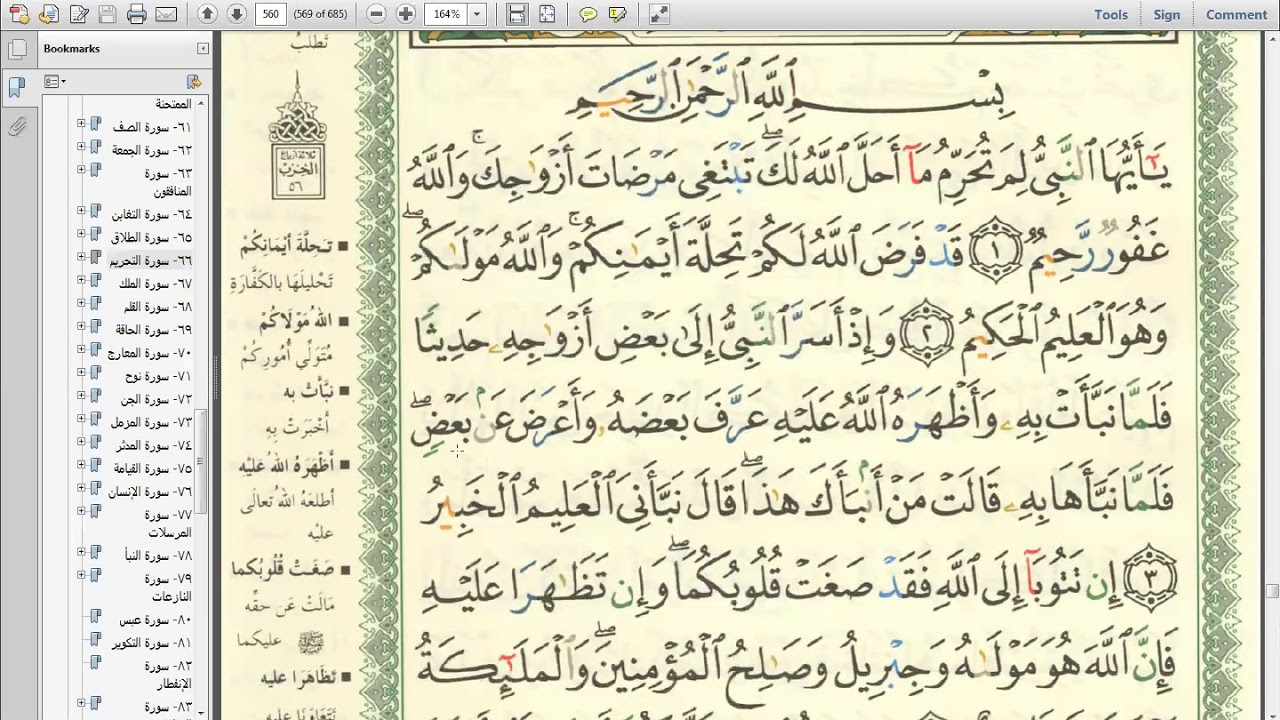 560
(569 of 685)
164%
Tools
Sign
Comment
Bookmarks
الممتحنة
٦١- سورة الصف
٦٢- سورة الجمعة
٦٣- سورة
المنافقون
٦٤- سورة التغابن
٦٥- سورة الطلاق
٦٦- سورة التحريم
٦٧- سورة الملك
٦٨- سورة القلم
٦٩- سورة الحاقة
٧٠- سورة المعارج
٧١- سورة نوح
٧٢- سورة الجن
٧٣- سورة المزمل
٧٤- سورة المدثر
٧٥- سورة القيامة
٧٦- سورة الإنسان
٧٧- سورة
المرسلات
٧٨- سورة النبأ
٧٩- سورة
النازعات
٨٠- سورة عبس
٨١- سورة التكوير
٨٢- سورة
الإنفطار
٨٣- سورة
بِسْمِ ٱللَّهِ ٱلرَّحْمَٰنِ ٱلرَّحِيمِ
يَٰٓأَيُّهَا ٱلنَّبِىُّ لِمَ تُحَرِّمُ مَآ أَحَلَّ ٱللَّهُ لَكَ ۖ تَبْتَغِى مَرْضَاتَ أَزْوَٰجِكَ ۚ وَٱللَّهُ
غَفُورٌ رَّحِيمٌ ١ قَدْ فَرَضَ ٱللَّهُ لَكُمْ تَحِلَّةَ أَيْمَٰنِكُمْ ۚ وَٱللَّهُ مَوْلَىٰكُمْ ۖ
وَهُوَ ٱلْعَلِيمُ ٱلْحَكِيمُ ٢ وَإِذْ أَسَرَّ ٱلنَّبِىُّ إِلَىٰ بَعْضِ أَزْوَٰجِهِۦ حَدِيثًا
فَلَمَّا نَبَّأَتْ بِهِۦ وَأَظْهَرَهُ ٱللَّهُ عَلَيْهِ عَرَّفَ بَعْضَهُۥ وَأَعْرَضَ عَنۢ بَعْضٍ ۖ
فَلَمَّا نَبَّأَهَا بِهِۦ قَالَتْ مَنْ أَنۢبَأَكَ هَٰذَا ۖ قَالَ نَبَّأَنِىَ ٱلْعَلِيمُ ٱلْخَبِيرُ
٣ إِن تَتُوبَآ إِلَى ٱللَّهِ فَقَدْ صَغَتْ قُلُوبُكُمَا ۖ وَإِن تَظَٰهَرَا عَلَيْهِ
فَإِنَّ ٱللَّهَ هُوَ مَوْلَىٰهُ وَجِبْرِيلُ وَصَٰلِحُ ٱلْمُؤْمِنِينَ ۖ وَٱلْمَلَٰٓئِكَةُ
تَطلُبُ
ثلاثة أرباع
الحزب
٥٦
تَحِلَّةَ أَيْمَانِكُمْ
تَحْلِيلَهَا بالكَفَّارَةِ
اللهُ مَوْلَاكُمْ
مُتَوَلِّي أُمُورِكُمْ
نَبَّأتْ به
أَخْبَرَتْ بِهِ
أَظْهَرَهُ اللهُ عَلَيْهِ
أطْلعَهُ اللهُ تعالَى
عليه
صَغَتْ قُلُوبُكما
مَالَتْ عَن حقِّه
ﷺ عليكما
تَظَاهَرَا عليه
تَتَعاوَنَا عليه